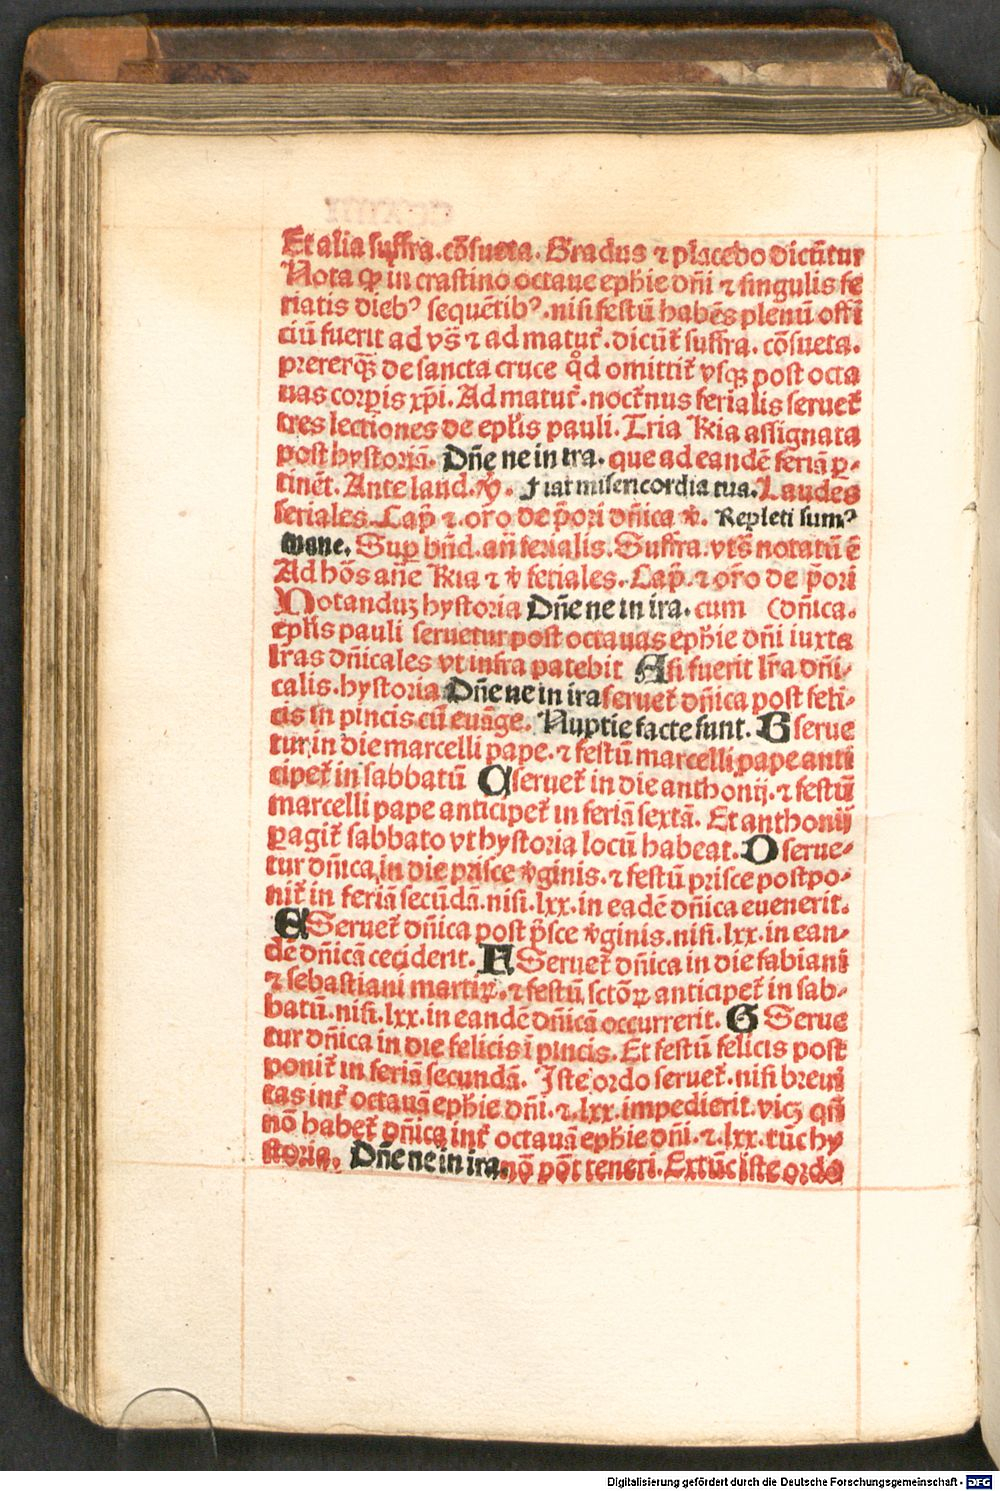 Et alia suffra. cōsueta. Gradus ⁊ placebo dicūtur
Nota ꝙ in crastino octaue ephie dn̄i ⁊ singulis fe
riatis dieb⁹ sequētib⁹. nisi festū habēs plenū offi
ciū fuerit ad vs̄ ⁊ ad matut̄. dicūt̄ suffra. cōsueta.
preterq̄ꝫ de sancta cruce qd̊ omittit̄ vsqꝫ post octa
uas corpis xp̄i. Ad matut̄. noct̄nus ferialis seruet̄
tres lectiones de epl̄is pauli. Tria Rn̄ia assignata
post hystoriā. Dn̄e ne in ira. que ad eandē feriā ꝑ-
tinēt. Ante laud. ꝟ. Fiat misericordia tua. Laudes
feriales. Cap̄ ⁊. or̄o de p̄ori dn̄ica ꝟ. Repleti sum⁹
mane. Suꝑ bn̄d. an̄ ferialis. Suffra. vts̄ notatū ē
Ad hōs an̄e Rn̄ia ⁊ ꝟ feriales. Cap̄. ⁊ or̄o de p̄ori
Notanduꝫ hystoria Dn̄e ne in ira. cum dn̄ica.
epl̄is pauli seruetur post octauas ephie dn̄i iuxta
lr̄as dn̄icales vt infra patebit A si fuerit lr̄a dn̄i-
calis. hystoria Dn̄e ne in ira seruet̄ dn̄ica post feli-
cis in pincis cū euāge. Nuptie facte sunt. B serue
tur in die marcelli pape. ⁊ festū marcelli pape anti
cipet̄ in sabbatū C seruet̄ in die anthonij. ⁊ festū
marcelli pape anticipet̄ in feriā sextā. Et anthonij
ꝑagit̄ sabbato vt hystoria locū habeat. D serue-
tur dn̄ica in die prisce ꝟginis. ⁊ festū prisce postpo-
nit̄ in feriā secūdā. nisi. lxx. in eadē dn̄ica euenerit.
E Seruet̄ dn̄ica post p̄sce ꝟginis. nisi. lxx. in ean-
dē dn̄icā ceciderit. F Seruet̄ dn̄ica in die fabiani
⁊ sebastiani martiꝝ. ⁊ festū sctōꝝ anticipet̄ in sab-
batū. nisi. lxx. in eandē dn̄icā occurrerit. G Serue
tur dn̄ica in die felicis ī pincis. Et festū felicis post
ponit̄ in feriā secundā. Iste ordo seruet̄. nisi breui
tas int̄ octauā ephie dn̄i. ⁊. lxx. impedierit. vicꝫ qn̄
nō habet̄ dn̄ica int̄ octauā ephie dn̄i. ⁊. lxx. tūc hy
storia. Dn̄e ne in ira. nō pōt teneri. Extūc iste ordo
Digitalisierung gefördert durch die Deutsche Forschungsgemeinschaft - DFG